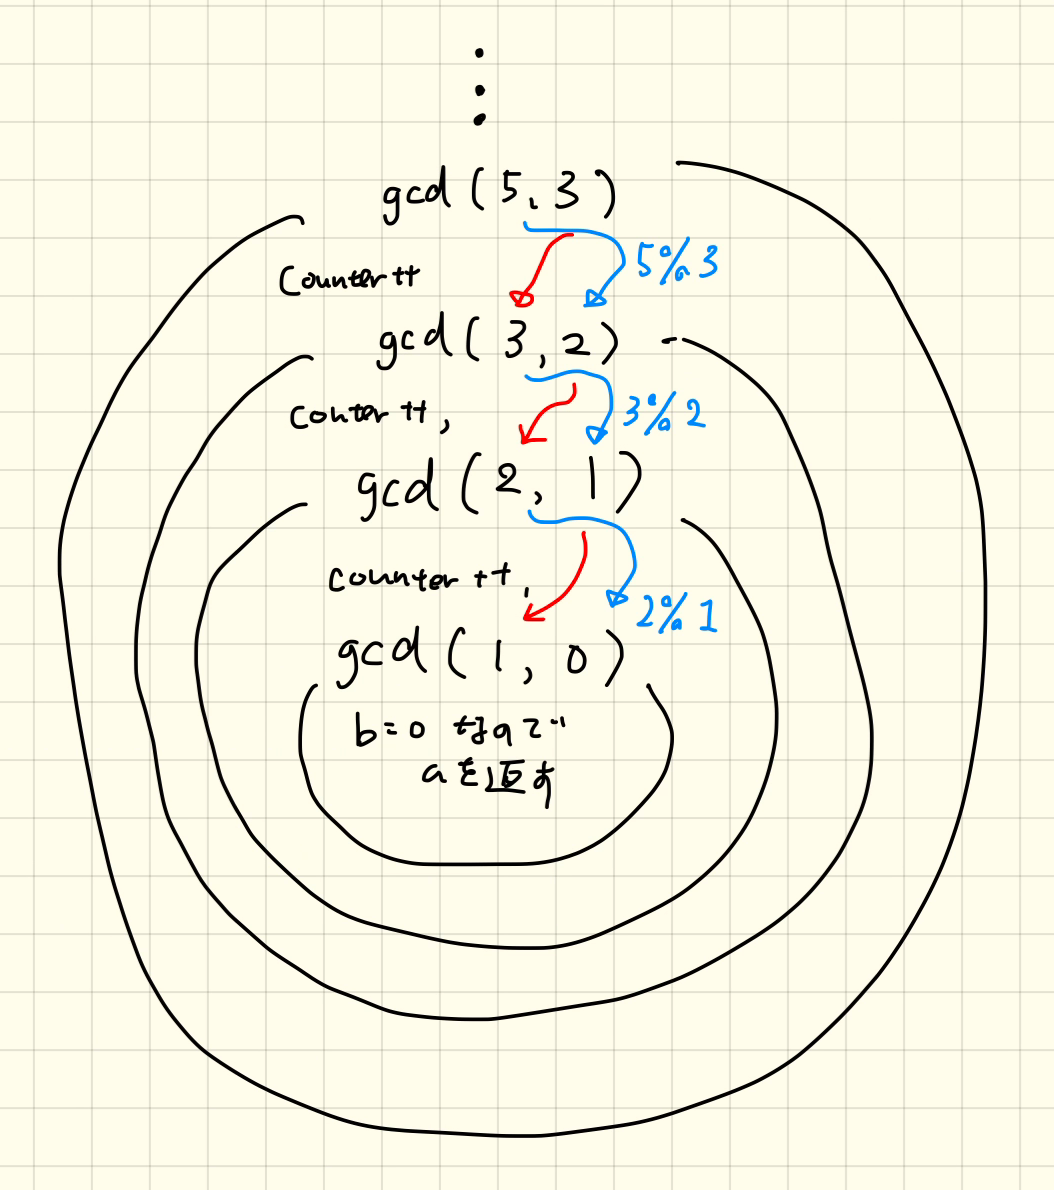 gcd(5,3)
5%3
Counter++
gcd(3,2)
3%2
conter++,
gcd(2,1)
counter++,
2%1
gcd(1,0)
b=0 なので
aを返す